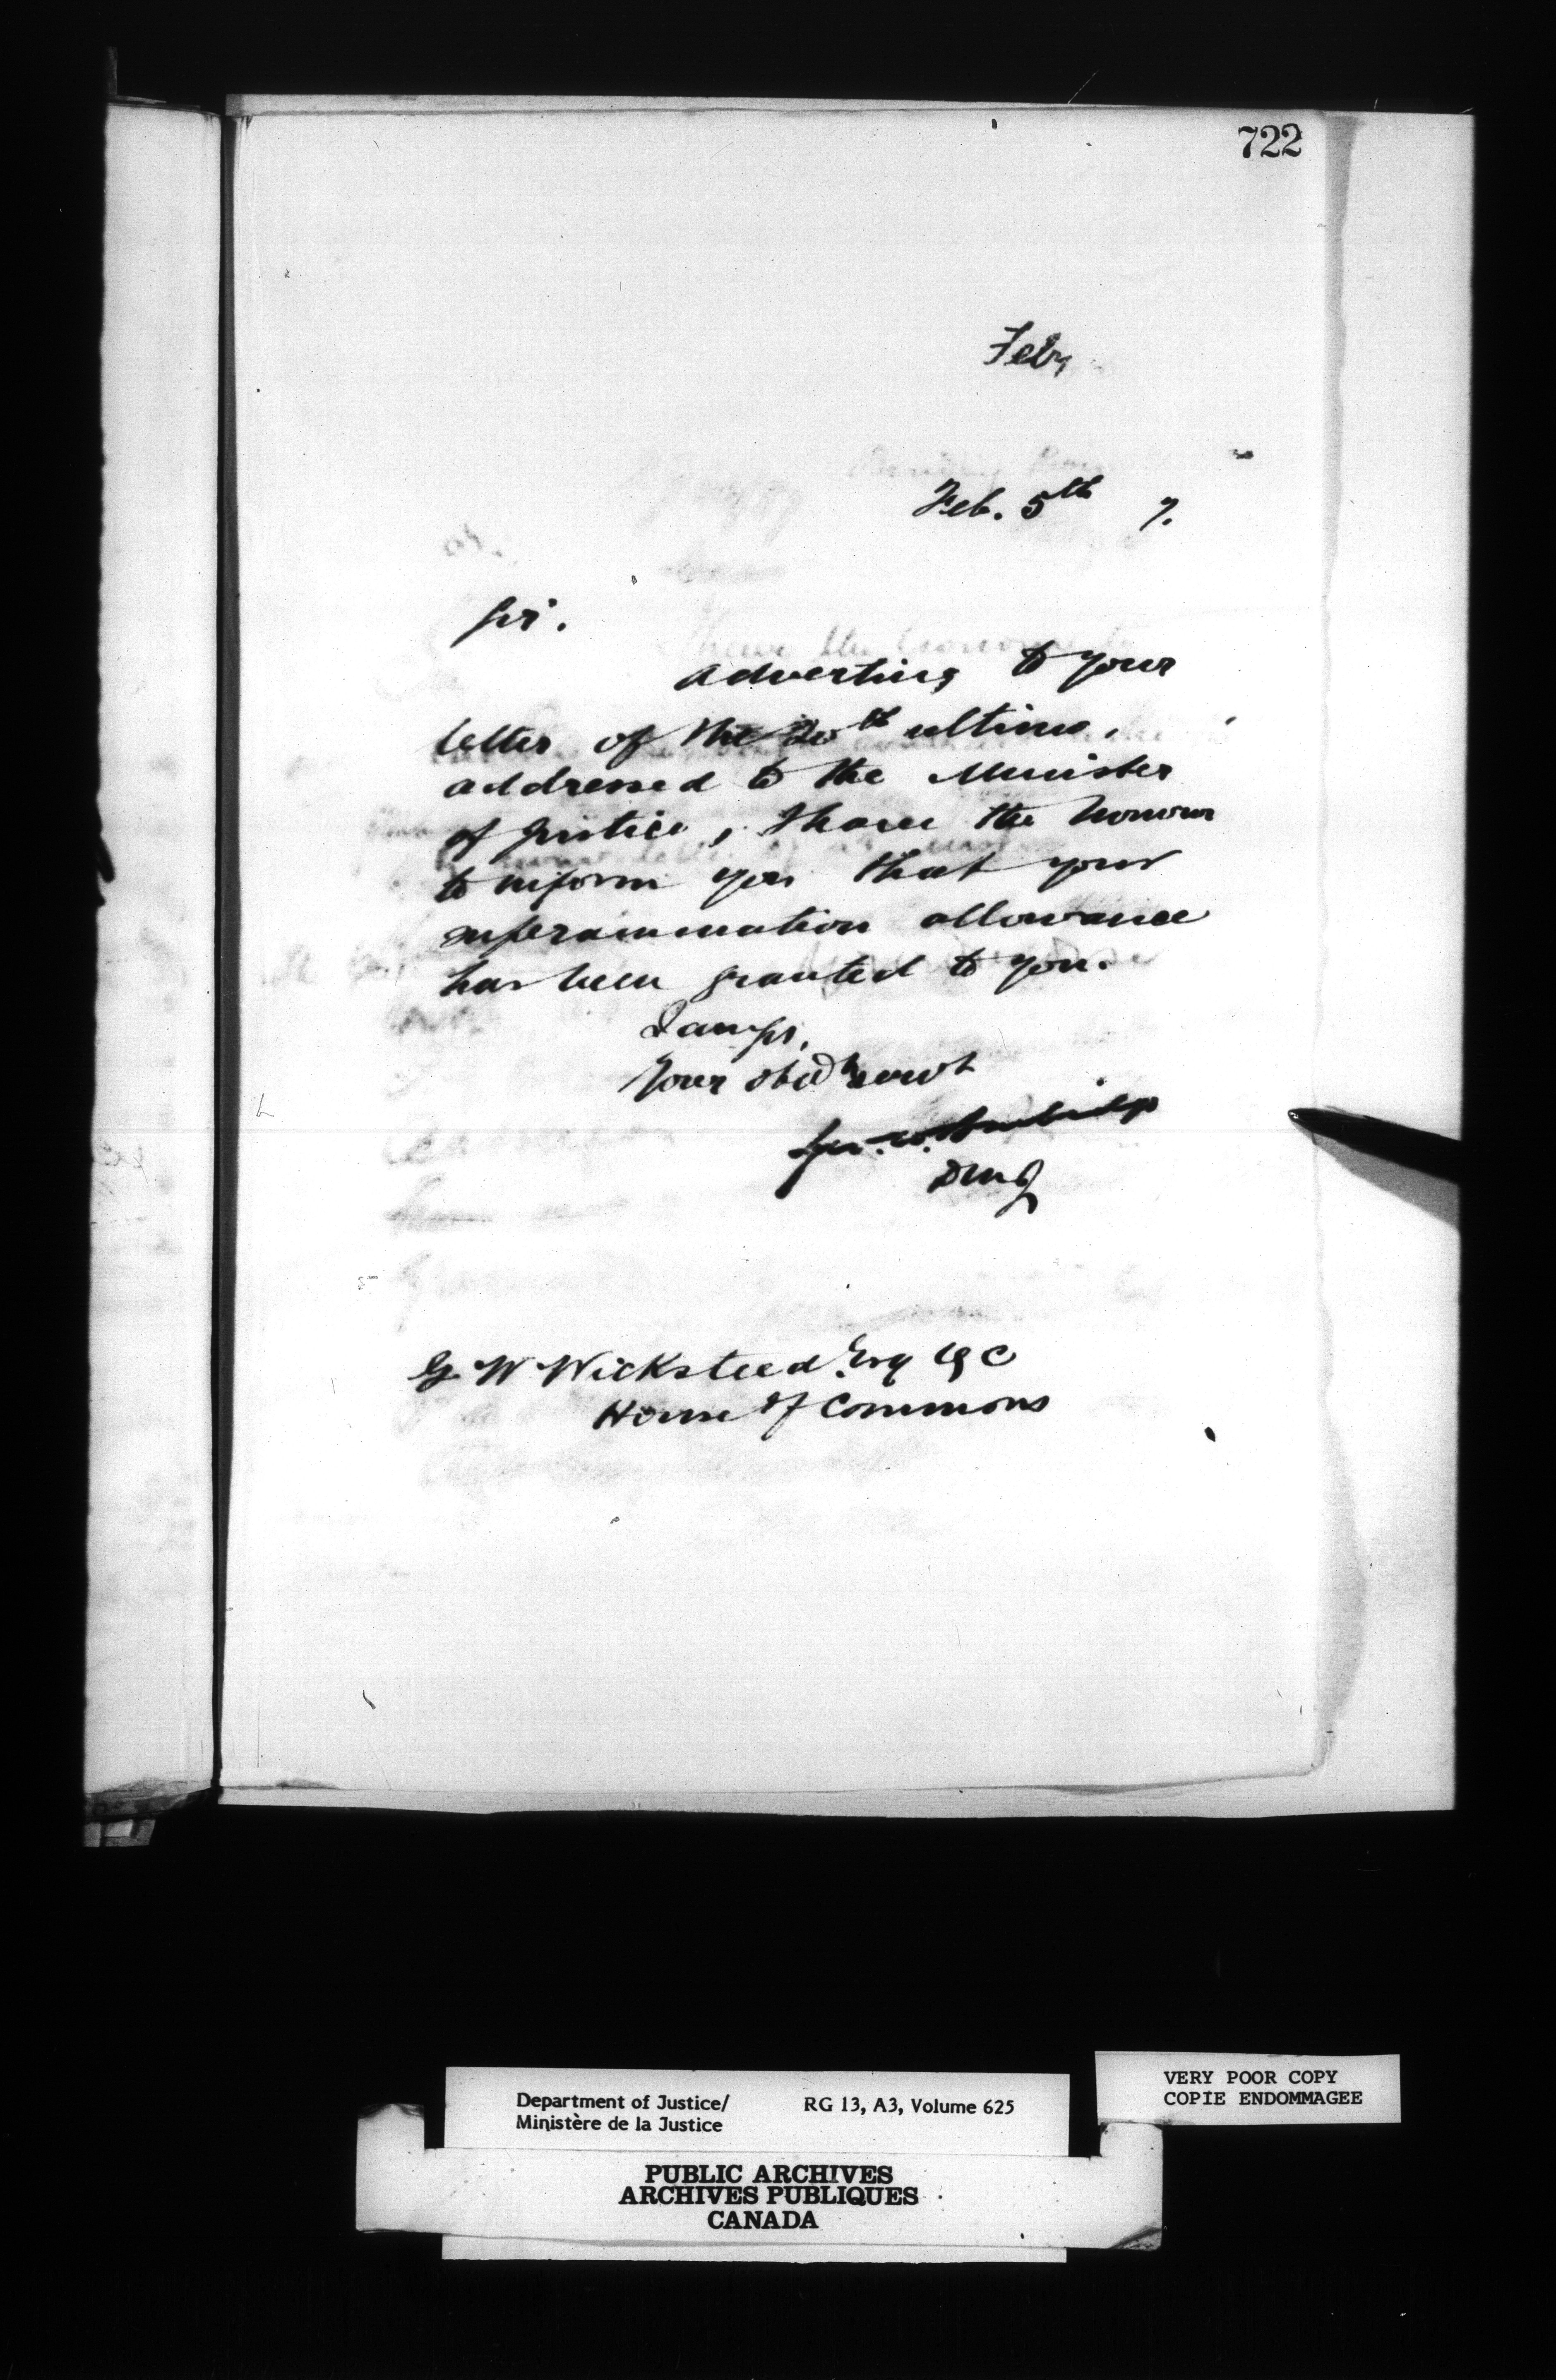 722
Feby
Feb. 5th 7.
Sir.
Adverting to your
letter of the 20th ultimo,
addressed to the Minister
of Justice, I have the honour
to inform you that your
superannuation allowance
has been granted to you.
I am Sir,
Your obdt servt
Geo. W. Burbidge
DMJ
G W Wicksteed Esq QC
House of Commons
Department of Justice/ RG 13, A3, Volume 625
Ministère de la Justice
VERY POOR COPY
COPIE ENDOMMAGEE
PUBLIC ARCHIVES
ARCHIVES PUBLIQUES
CANADA